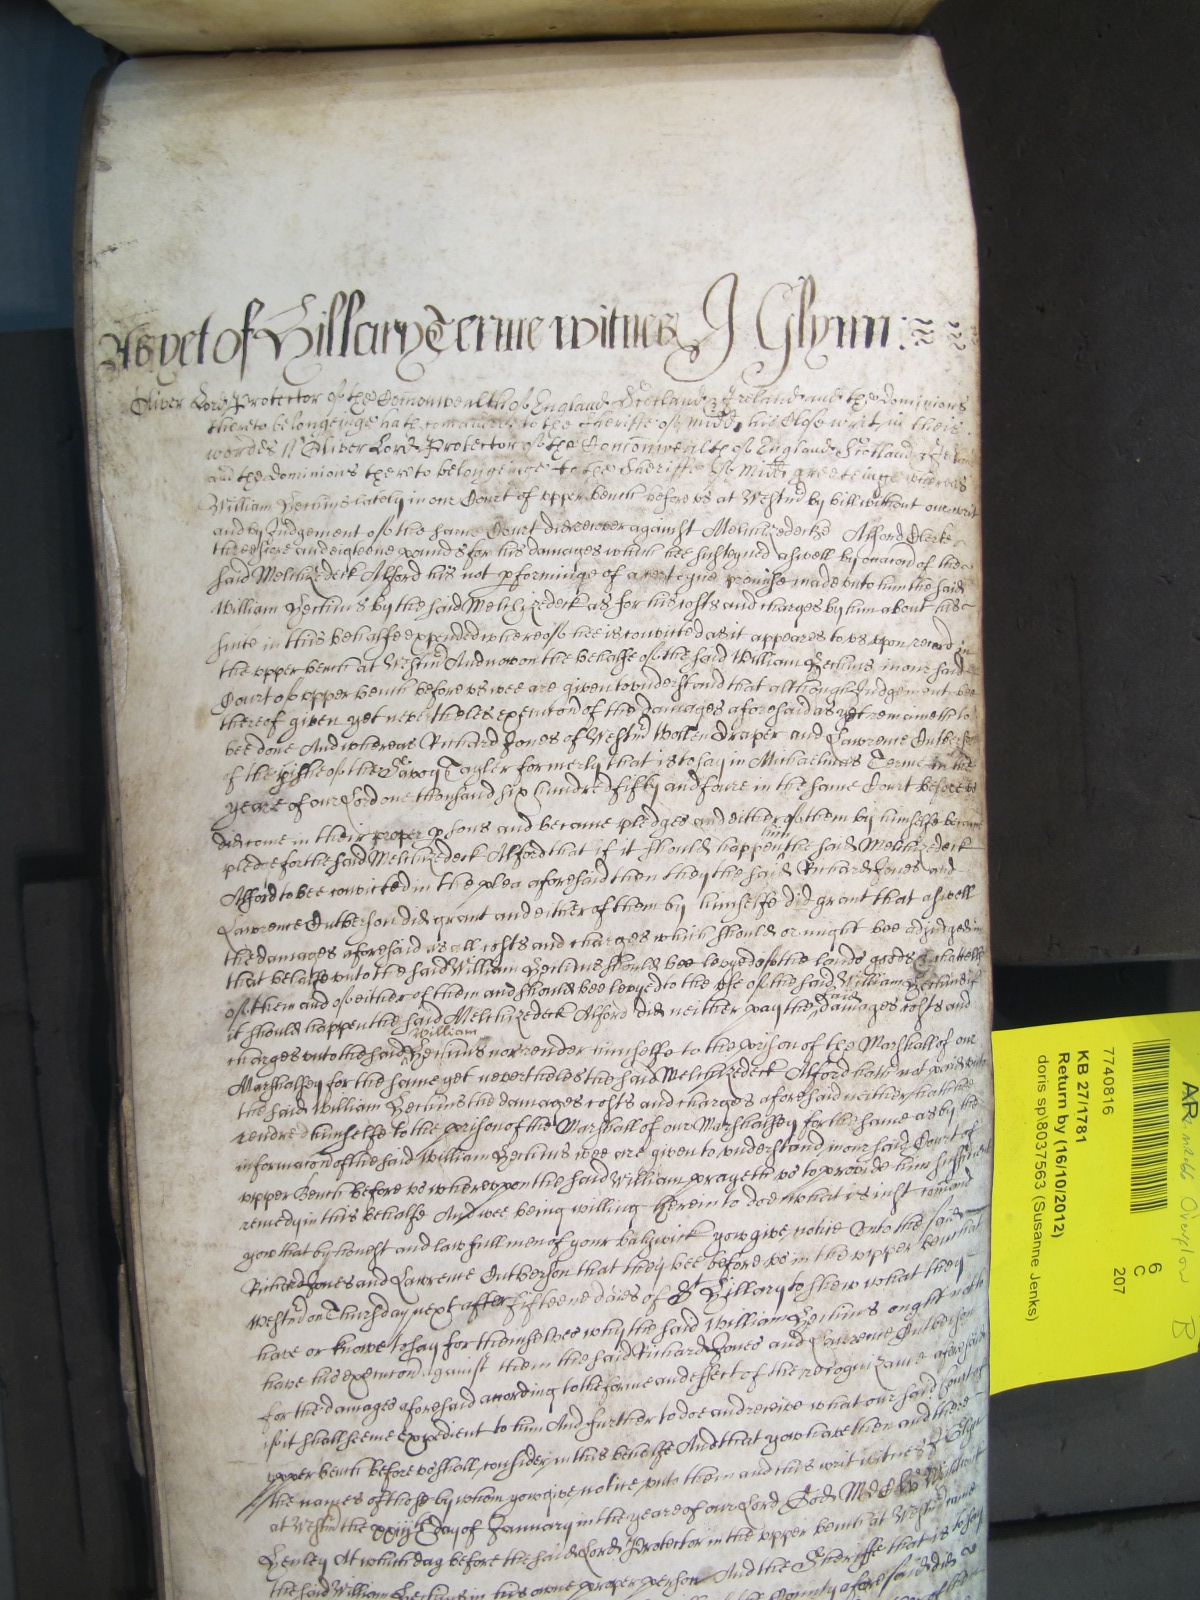 As yet of Hillary Terme witnes J Glynn:
Oliver Lord Protector of the Comonwealth of England Scotland & Ireland and the Dominions
thereto belonginge hath comanded to the Sheriffe of Midd his Close writ in theis
wordes Oliver Lord Protector of the Comonwealth of England Scotland & Ireland
and the Dominions thereto belonginge to the Sheriffe of Midd greeteinge whereas
William lately in our Court of upper bench before us at Westm by bill without our writ
and by Judgement of the same Court did recover against Melchizedecke Alford Clerke
and eighteene pounds for his damages which hee susteyned aswell by occacon of the
said Melchizedeck Alford his not pforminge of a certeyne promise made unto him the said
William by the said Melchizedeck as for his costs and charges by him about his
suite in this behalfe expended whereof hee is convicted as it appeares to us upon record in
the upper bench at Westm And now on the behalfe of the said William in our said
Court of upper bench before us wee are given to understand that although Judgement bee
thereof given yet nevertheles execucon of the damages aforesaid as yet remaineth to
bee done And whereas Richard Jones of Westm Wollen Draper and Lawrence Cutberson
of the pishe of the Savoy Tayler formerly that is to say in Michaelmas Terme in the
yeare of our Lord one thousand six hundred fifty and foure in the same Court before us
did come in their proper psons and became pledges and either of them by himselfe became
pledge for the said Melchizedeck Alford that if it should happen him the said Melchizedeck
Alford to bee convicted in the plea aforesaid then they the said Richard Jones and
Lawrence Cutberson did grant and either of them by himselfe did grant that aswell
the damages aforesaid as all costs and charges which should or might bee adjudged in
that behalfe unto the said William should bee levyed of the lands goods & chattells
of them and of either of them and should bee levyed to the use of the said William if
it should happen the said Melchizedeck Alford did neither pay the said damages costs and
charges unto the said William nor render himselfe to the prison of the Marshall of our
Marshalsey for the same yet nevertheles the said Melchizedeck Alford hath not paid unto
the said William the damages costs and charges aforesaid neither hath hee
rendred himselfe to the prison of the Marshall of our Marshalsey for the same as by the
informacon of the said William wee are given to understand in our said Court of
upper Bench before us whereupon the said William prayeth us to provide him sufficient
remedy in this behalfe And wee being willing therein to doe what is just comand
yow that by honest and lawfull men of your baliwick yow give notice unto the said
Richard Jones and Lawrence Cutberson that they bee before us in the upper bench at
Westm on Thursday next after fifteene daies of St Hillary to shew what they
have or knowe to say for themselves why the said William ought not to
have his execucon against them the said Richard Jones and Lawrence Cutberson
for the damages aforesaid according to the forme and effect of the recognizance aforesaid
if it shall seeme expedient to him And further to doe and receive what our said Court of
upper bench before us shall consider in this behalfe And that yow have then and there
the names of those by whom yow give notice unto them and this writ witnes J Glyn
at Westm the xxiijth Day of January in the yeare of our Lord God
Henley At which day before the said Lord Protector in the upper bench at Westm came
the said William in his owne proper person And the Sheriffe that is to say
County aforesaid did
AR
6
C
207
7740816
KB 27/1781
Return by (16/10/2012)
doris sp8037563 (Susanne Jenks)
Overflow B